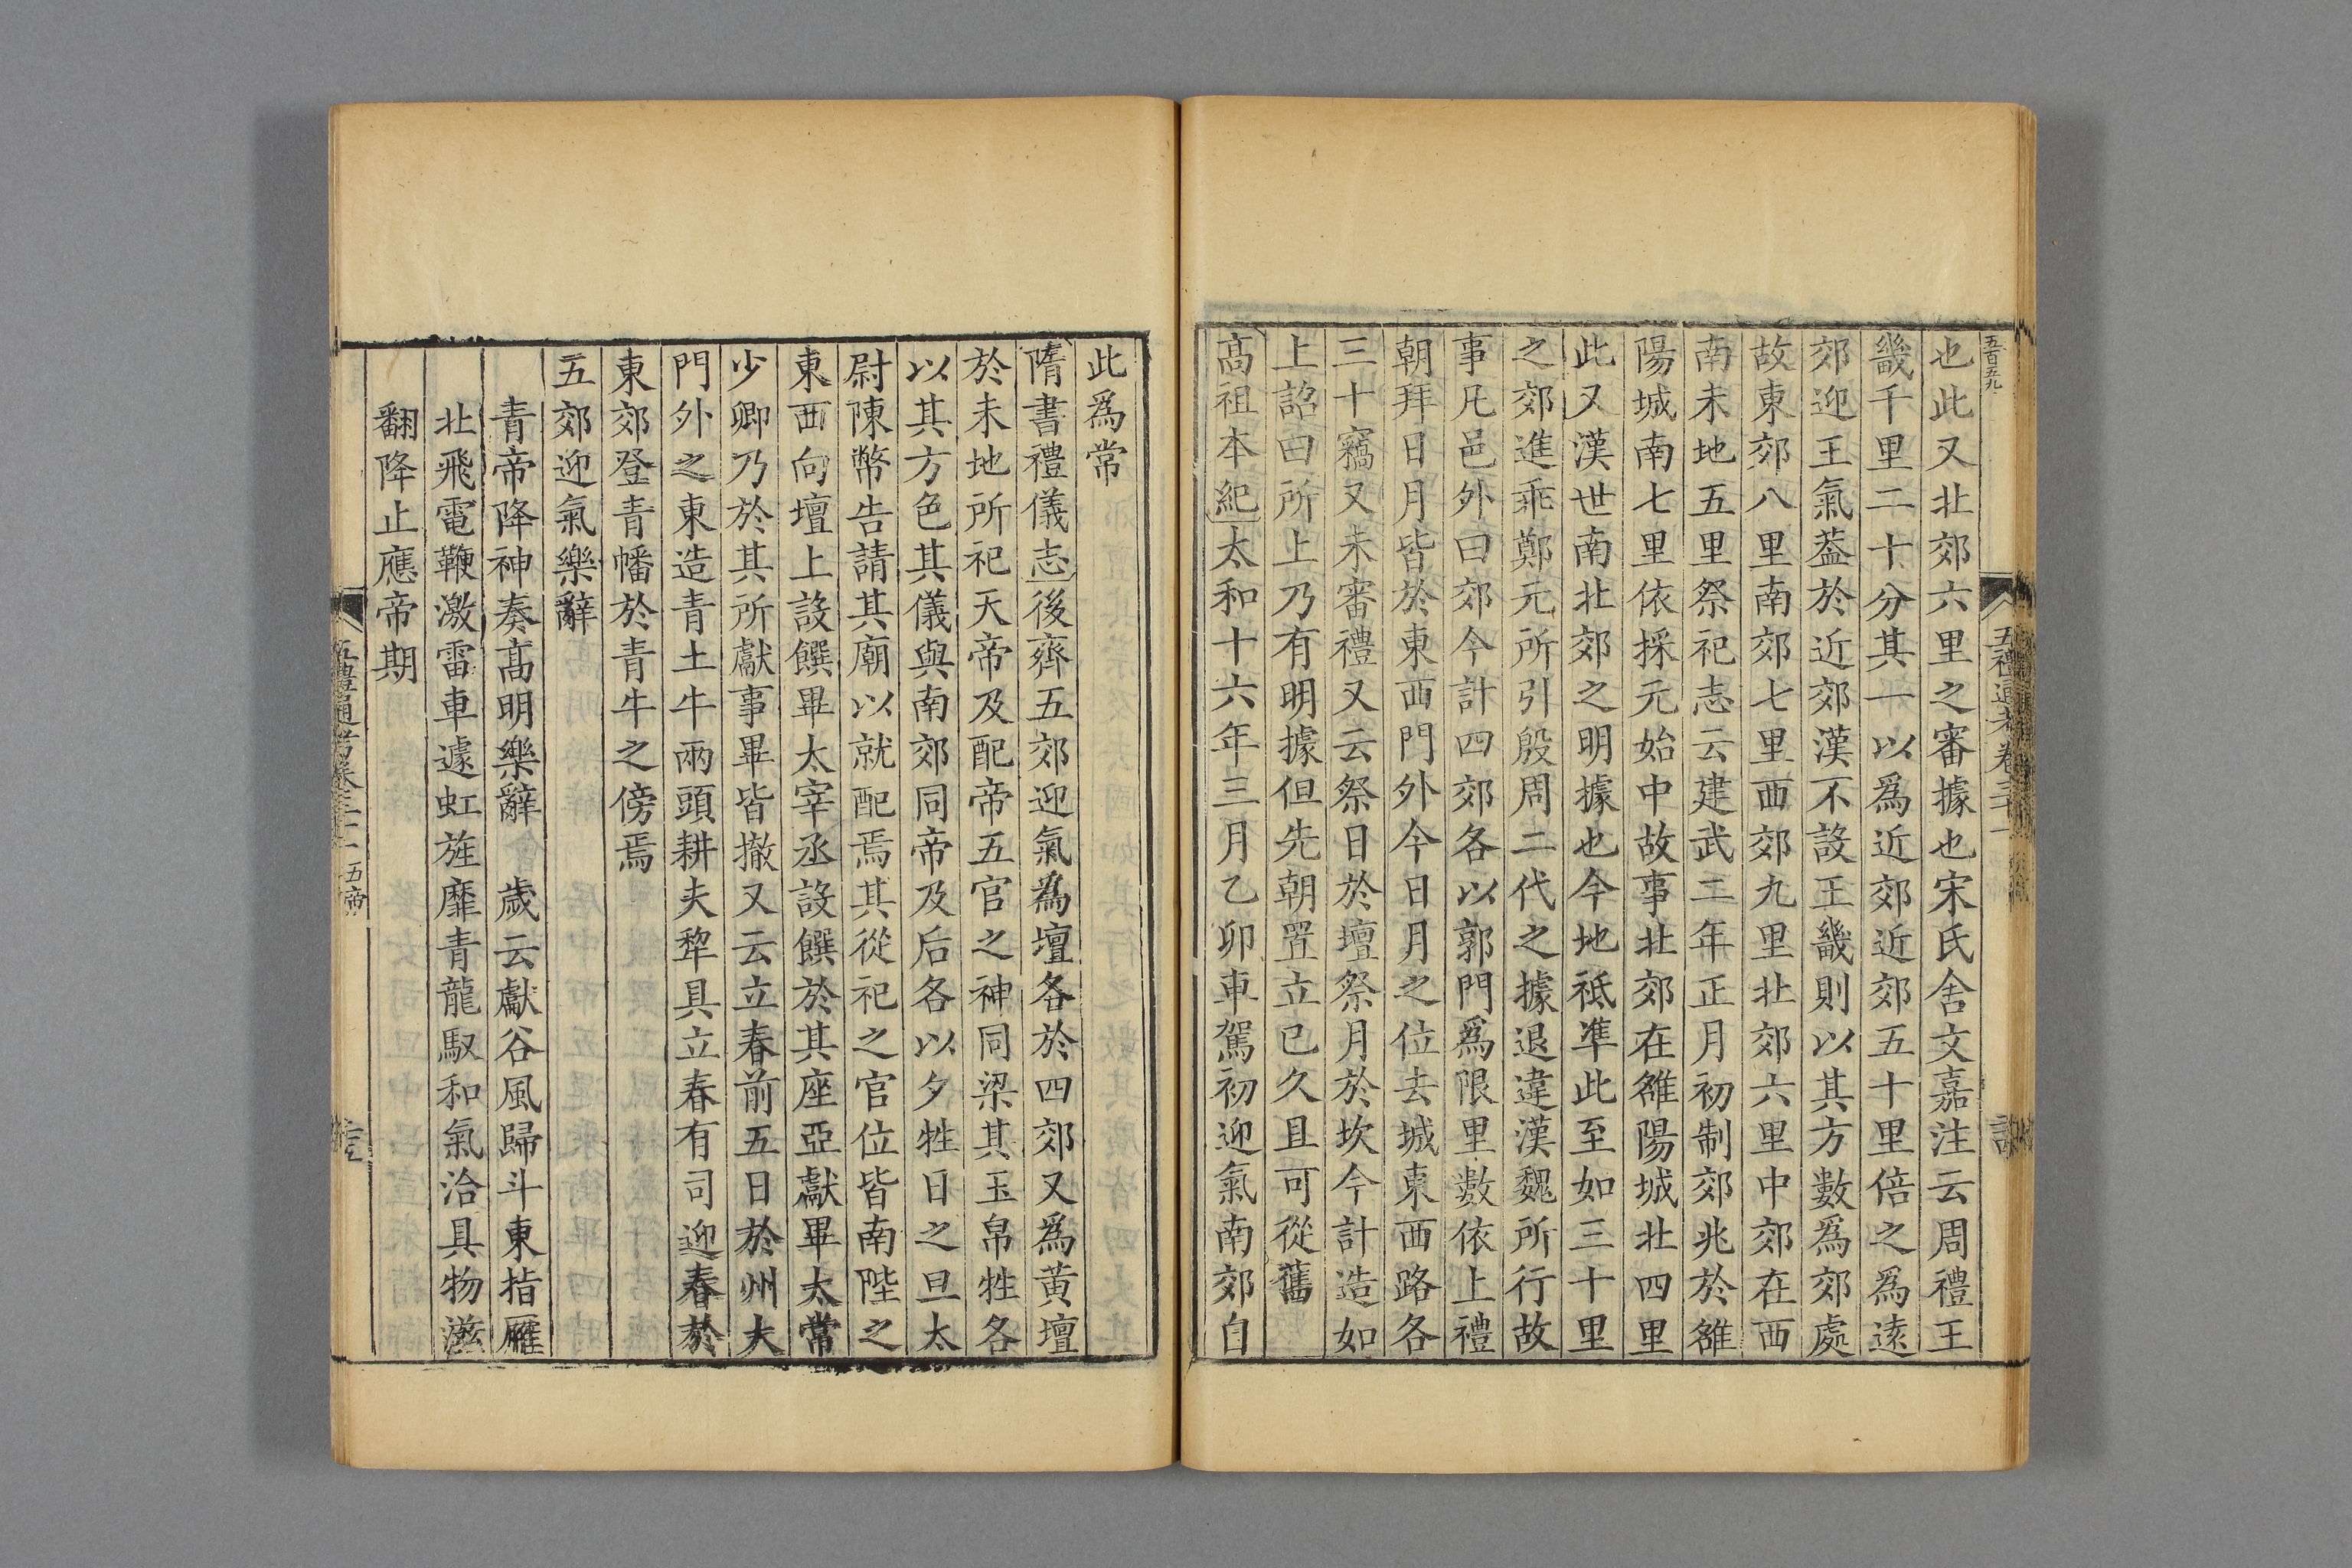 五百五九
也此又北郊六里之審據也宋氏舍文嘉注云周禮王
畿千里二十分其一以爲近郊近郊五十里倍之爲遠
郊迎王氣葢於近郊漢不設王畿則以其方數爲郊處
故東郊八里南郊七里西郊九里北郊六里中郊在西
南未地五里祭祀志云建武二年正月初制郊兆於雒
陽城南七里依採元始中故事北郊在雒陽城北四里
此又漢世南北郊之明據也今地祗凖此至如三十里
之郊進乖鄭元所引殷周二代之據退違漢魏所行故
事凡邑外曰郊今計四郊各以郭門爲限里數依上禮
朝拜日月皆於東西門外今日月之位去城東西路各
三十竊又未審禮又云祭日於壇祭月於坎今計造如
上詔曰所上乃有明據但先朝置立已久且可從舊
高祖本紀太和十六年三月乙卯車駕初迎氣南郊自
此爲常
隋書禮儀志後齊五郊迎氣爲壇各於四郊又爲黄壇
於未地所祀天帝及配帝五官之神同梁其玉帛牲各
以其方色其儀與南郊同帝及后各以夕牲日之旦太
尉陳幣告請其廟以就配焉其從祀之官位皆南陛之
東西向壇上設饌畢太宰丞設饌於其座亞獻畢太常
少卿乃於其所獻事畢皆撤又云立春前五日於州大
門外之東造青土牛兩頭耕夫犂具立春有司迎春於
東郊登青幡於青牛之傍焉
五郊迎氣樂辭
青帝降神奏高明樂辭 歲云獻谷風歸斗東指雁
北飛電鞭激雷車遽虹旌靡青龍馭和氣洽具物滋
翻降止應帝期
五禮通考卷三十一 五帝